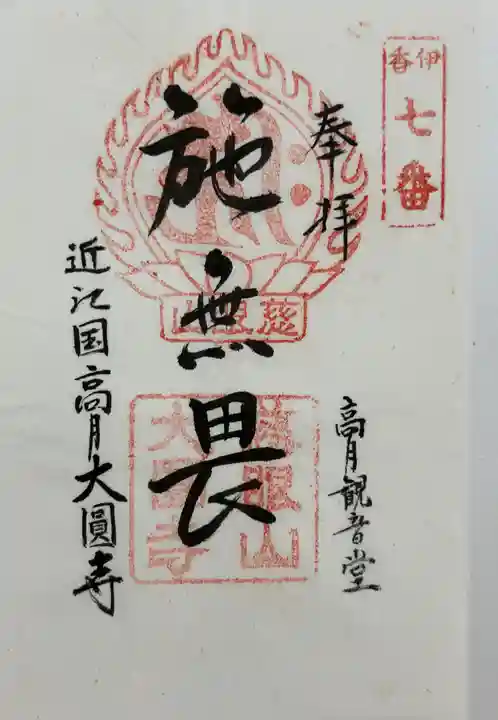 伊香
七番
奉拝
高月観音堂
施無畏
慈眼山
慈眼山
大圓寺
近江国高月大圓寺